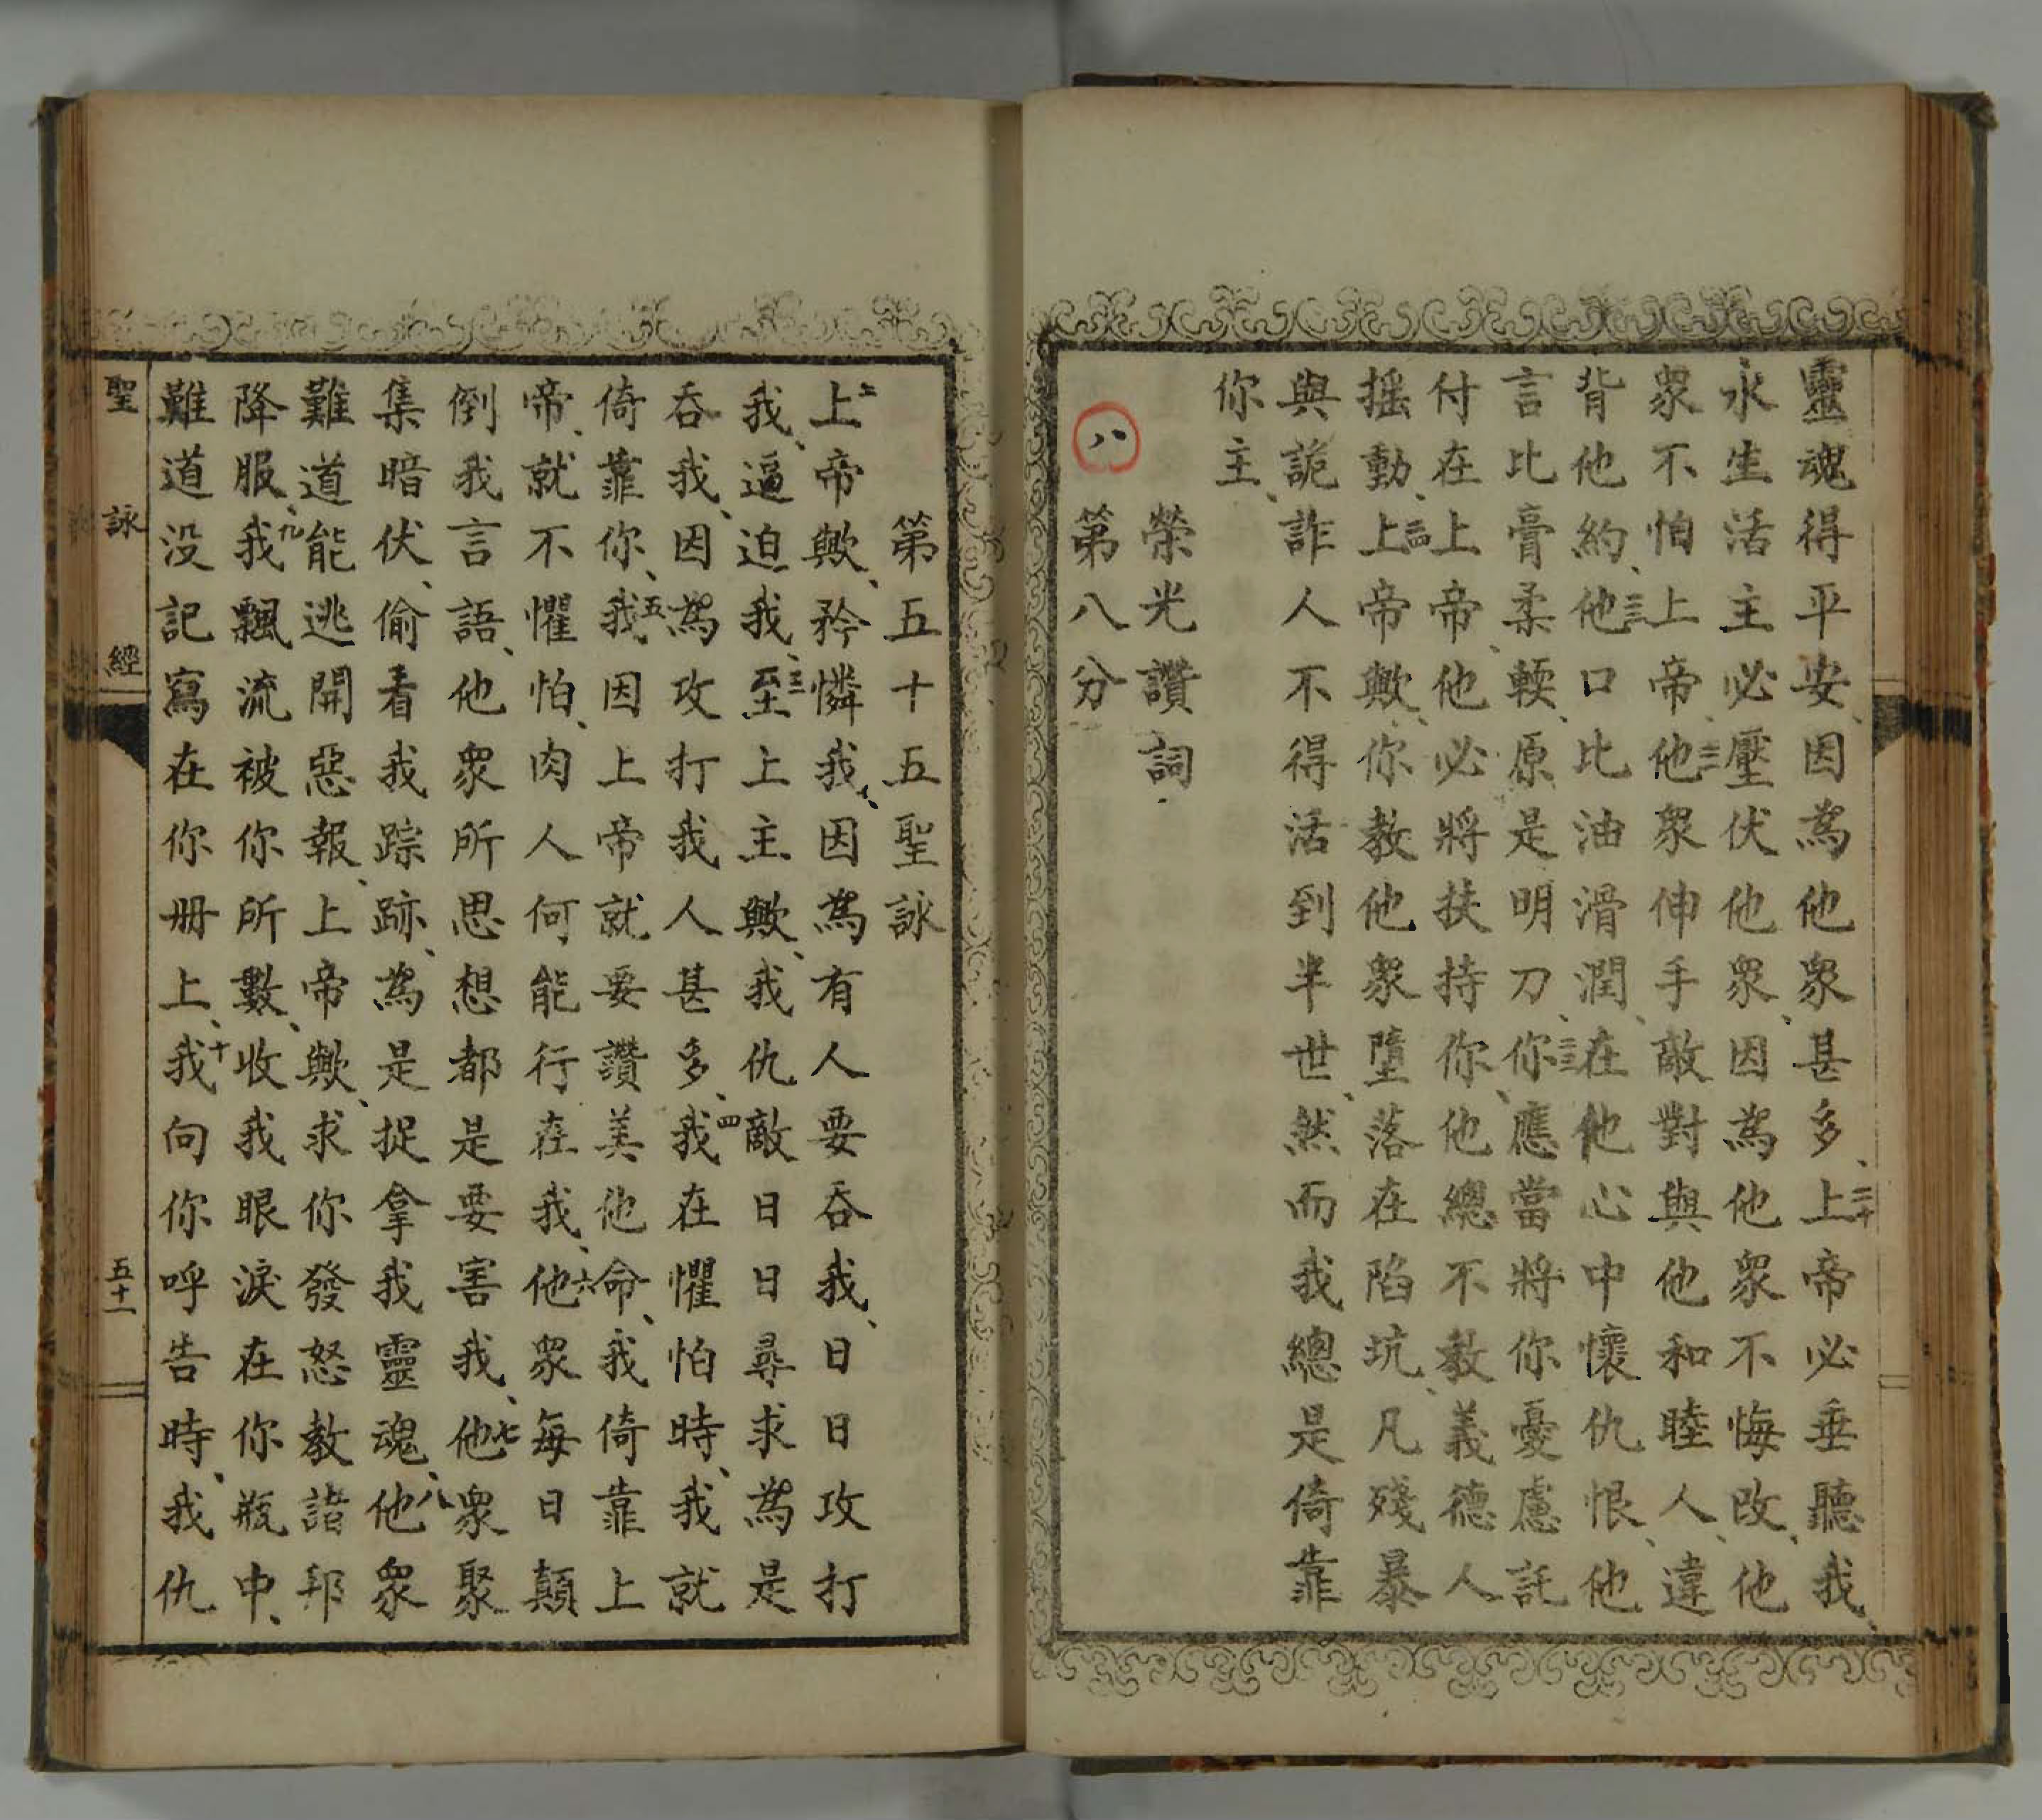 靈魂得平安、因為他眾甚多、三十上帝必垂聽我、
永生活主必壓伏他眾、因為他眾不悔改、他
眾不怕上帝、三一他眾伸手敵對與他和睦人、違
背他約、三二他口比油滑潤、在他心中懷仇恨、他
言比膏柔輭、原是明刀、三三你應當將你憂慮託
付在上帝、他必將扶持你、他總不教義德人
摇動、三四上帝歟、你教他眾墮落在陷坑、凡殘暴
與詭詐人不得活到半世、然而我總是倚靠
你主、
榮光讚詞
八 第八分
第五十五聖詠
二上帝歟、矜憐我、因為有人要吞我、日日攻打
我、逼迫我、三至上主歟、我仇敵日日尋求為是
吞我、因為攻打我人甚多、四我在懼怕時、我就
倚靠你、五我因上帝就要讚美他命、我倚靠上
帝、就不懼怕、肉人何能行在我、六他眾每日顛
倒我言語、他眾所思想都是要害我、七他眾聚
集暗伏、偷看我踪跡、為是捉拿我靈魂、八他眾
難道能逃開惡報、上帝歟、求你發怒教諸邦
降服、九我飄流被你所數、收我眼淚在你瓶中、
難道没記寫在你册上、十我向你呼告時、我仇
聖詠經 五十一